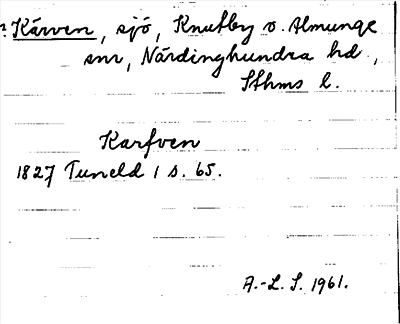 ? Kärven, sjö, Knutby o. Almunge
snr, Närdinghundra hd,
Sthms l.
Karfven
1827 Tuneld 1 s. 65.
A.-L. S. 1961.